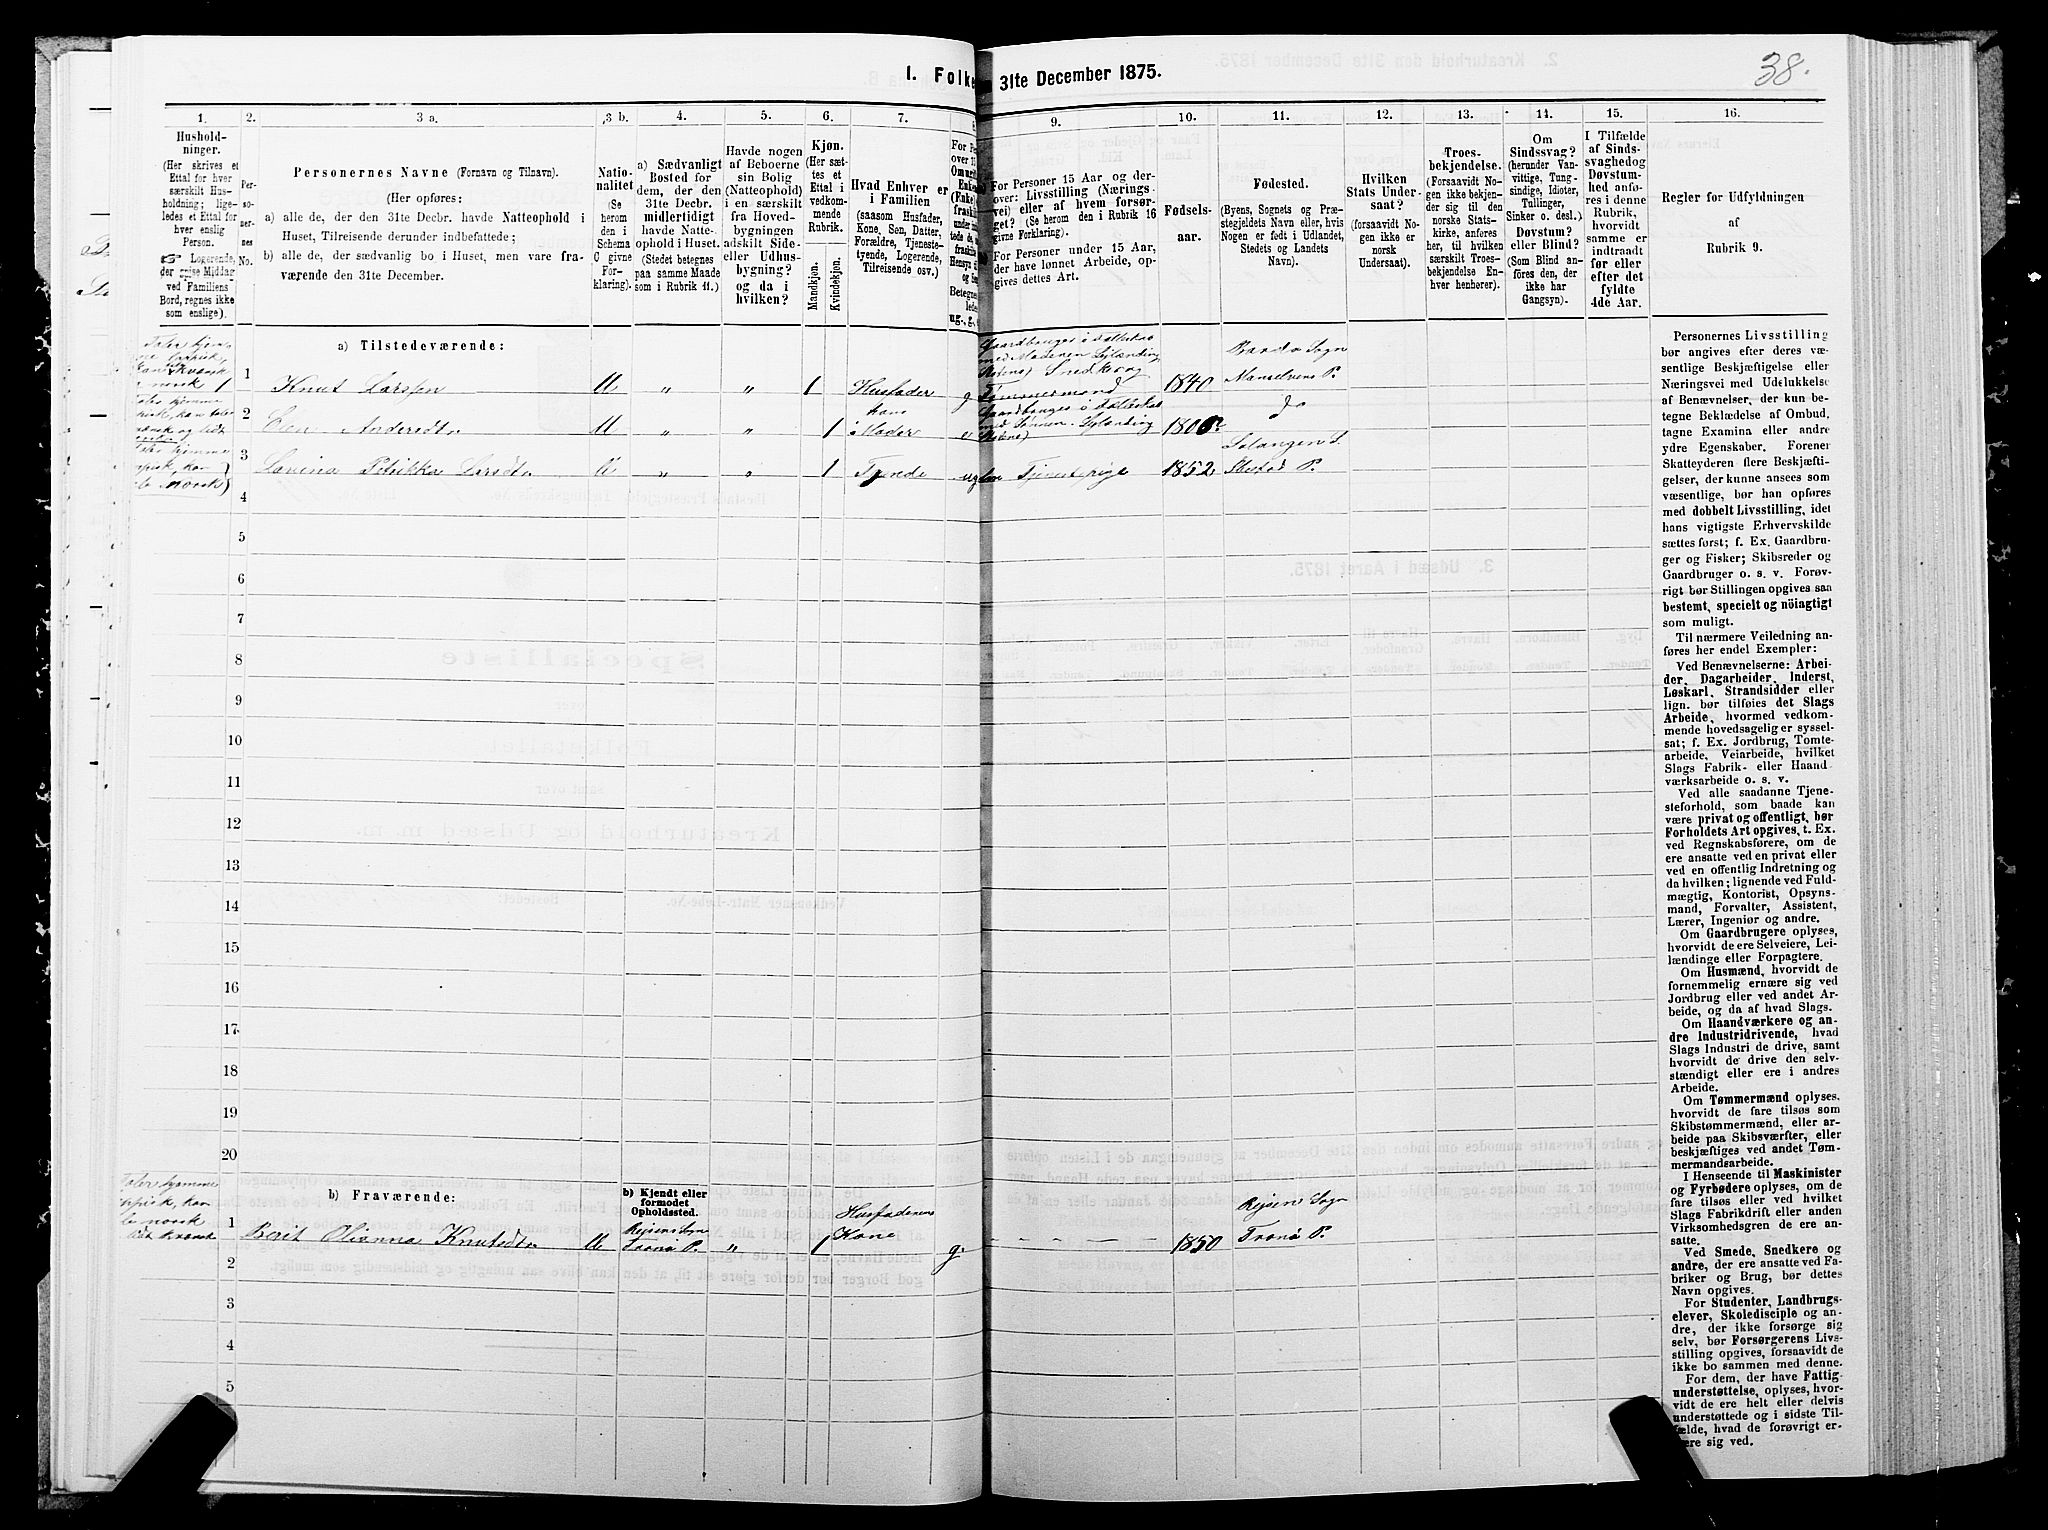 38.
I. Folke
31te December 1875.
1.
2.
3 a.
3 b.
4.
5.
6.
7.
8
9.
10.
11.
12.
13.
14.
15.
16.
Hushold-
ninger.
(Her skrives et
Ettal for hver
særskilt Hus-
holdning; lige-
ledes et Ettal for
hver enslig
Person.
☞ Logerende,
der spise Middag
ved Familiens
Bord, regnes ikke
som enslige).
Per-
so-
ner-
nes
No.
Personernes Navne (Fornavn og Tilnavn).
(Her opføres:
a) alle de, der den 31te Decbr. havde Natteophold i
Huset, Tilreisende derunder indbefattede;
b) alle de, der sædvanlig bo i Huset, men vare fra-
værende den 31te December.
Natio-
nalitet
(Se
herom
den i
Schema
C givne
For-
klaring).
a) Sædvanligt
Bosted for
dem, der den
31te Decbr.
midlertidigt
havde Natte-
ophold i Huset.
(Stedet betegnes
paa samme Maade
som i Rubrik 11.)
Havde nogen
af Beboerne
sin Bolig
(Natteophold)
i en særskilt
fra Hoved-
bygningen
adskilt Side-
eller Udhus-
bygning?
og da i
hvilken?
Kjøn.
(Her sæt-
tes et
Ettal i
vedkom-
mende
Rubrik.
Mandkjøn.
Kvindekjøn.
Hvad Enhver er
i Familien
(saasom Husfader,
Kone, Søn, Datter,
Forældre, Tjeneste-
tyende, Logerende,
Tilreisende osv.)
For Personer 15 Aar og der-
over: Livsstilling (Nærings-
vei) eller af hvem forsør-
get? (Se herom den i Rubrik 16
givne Forklaring).
For Personer under 15 Aar,
der have lønnet Arbeide, op-
gives dettes Art.
Fødsels-
aar.
Fødested.
(Byens, Sognets og Præ-
stegjeldets Navn eller, hvis
Nogen er født i Udlandet,
Stedets og Landets
Navn).
Hvilken
Stats Under-
saat?
(forsaavidt No-
gen ikke er
norsk
Undersaat).
Troes-
bekjendelse.
(Forsaavidt No-
gen ikke bekjen-
der sig til den
norske Stats-
kirke, anføres
her, til hvilken
særskilt Troes-
bekjendelse En-
hver henhører).
Om
Sindssvag?
(herunder Van-
vittige, Tung-
sindige, Idioter,
Tullinger,
Sinker o. desl.)
Døvstum?
eller Blind?
(Som Blind an-
føres den, der
ikke har
Gangsyn).
I Tilfælde
af Sinds-
svaghedog
Døvstum-
hed anfø-
res i denne
Rubrik,
hvorvidt
samme er
indtraadt
før eller
efter det
fyldte
4de Aar.
Regler for Udfyldningen
af
Rubrik 9.
a) Tilstedeværende:
1 1 Knut Larsen M „ „ 1 Husfader g Snedker og 1840 Bardo Sogn
Tømmermand Manselvens P.
2 Andersdt. „ „ 1 Moder do
3 Larsdt. „ „ 1 Tjenestepige 1852 Salangen S.
Ibestad P.
4
5
6
7
8
9
10
11
12
13
14
15
16
17
18
19
20
b) Fraværende:
b) Kjendt eller
formodet
Opholdssted.
Husfaderens
1 Berit Olianna Knutsdt. Tranø P. „ 1 Kone g. 1850 Tranø P.
2
3
4
5
Personernes Livsstilling
bør angives efter deres væ-
sentlige Beskjæftigelse eller
Næringsvei med Udelukkelse
af Benævnelser, der kun be-
tegne Beklædelse af Ombud,
tagne Examina eller andre
ydre Egenskaber. Forener
Skatteyderen flere Beskjæfti-
gelser, der kunne ansees som
væsentlige, bør han opføres
med dobbelt Livsstilling, idet
hans vigtigste Erhvervskilde
sættes først; f. Ex. Gaardbru-
ger og Fisker; Skibsreder og
Gaardbruger o. s. v. Forøv-
rigt bør Stillingen opgives saa
bestemt, specielt og nöiagtigt
som muligt.
Til nærmere Veiledning an-
føres her endel Exempler:
Ved Benævnelserne: Arbei-
der, Dagarbeider, Inderst,
Løskarl, Strandsidder eller
lign. bør tilføies det Slags
Arbeide, hvormed vedkom-
mende hovedsagelig er syssel-
sat; f. Ex. Jordbrug, Tomte-
arbeide, Veiarbeide, hvilket
Slags Fabrik- eller Haand
værksarbeide o. s. v.
Ved alle saadanne Tjene-
steforhold, som baade kan
være privat og offentligt, bør
Forholdets Art opgives, t. Ex.
ved Regnskabsførere, om de
ere ansatte ved en privat eller
ved en offentlig Indretning og
da hvilken; lignende ved Fuld-
mægtig, Kontorist, Opsyns-
mand, Forvalter, Assistent,
Lærer, Ingeniør og andre.
Om Gaardbrugere oplyses,
hvorvidt de ere Selveiere, Lei-
lændinge eller Forpagtere.
Om Husmænd, hvorvidt de
fornemmelig ernære sig ved
Jordbrug eller ved andet Ar-
beide, og da af hvad Slags.
Om Haandværkere og an-
dre Industridrivende, hvad
Slags Industri de drive, samt
hvorvidt de drive den selv-
stændigt eller ere i andres
Arbeide.
Om Tømmermænd oplyses,
hvorvidt de fare tilsøs som
Skibstømmermænd, eller ar-
beide paa Skibsværfter, eller
beskjæftiges ved andet Tøm-
mermandsarbeide.
I Henseende til Maskinister
og Fyrbødere oplyses, om de
fare tilsøs eller ved hvilket
Fabrikdrift eller anden
Virksomhedsgren de ere an-
satte.
Ved Smede, Snedkere og
andre, der ere ansatte ved Fa-
briker og Brug, bør dettes
Navn opgives.
For Studenter, Landbrugs-
elever, Skoledisciple og an-
dre, der ikke forsørge sig
selv, bør Forsørgerens Livs-
stilling opgives, forsaavidt de
ikke bo sammen med denne.
For dem, der have Fattig-
understøttelse, oplyses, hvor-
vidt de ere helt eller delvis
understøttede og i sidste Til-
fælde, hvad de forøvrigt er-
nære sig ved.